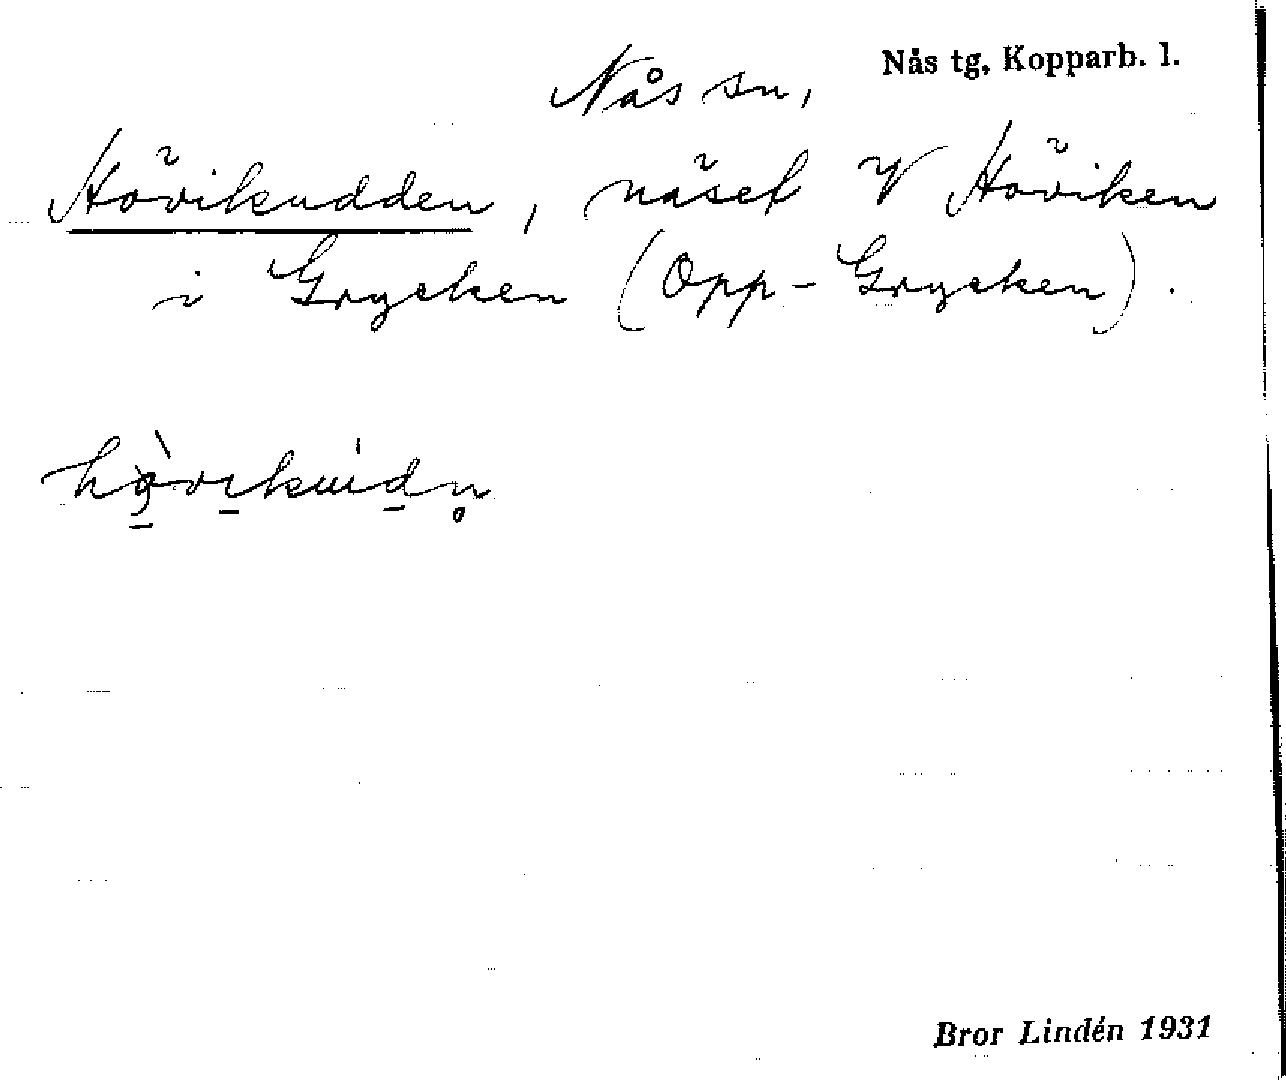 Nås tg, Kopparb. l.
Nås sn,
Hövikudden, näset V Höviken
i Grycken (Opp-Grycken).
Bror Lindén 1931